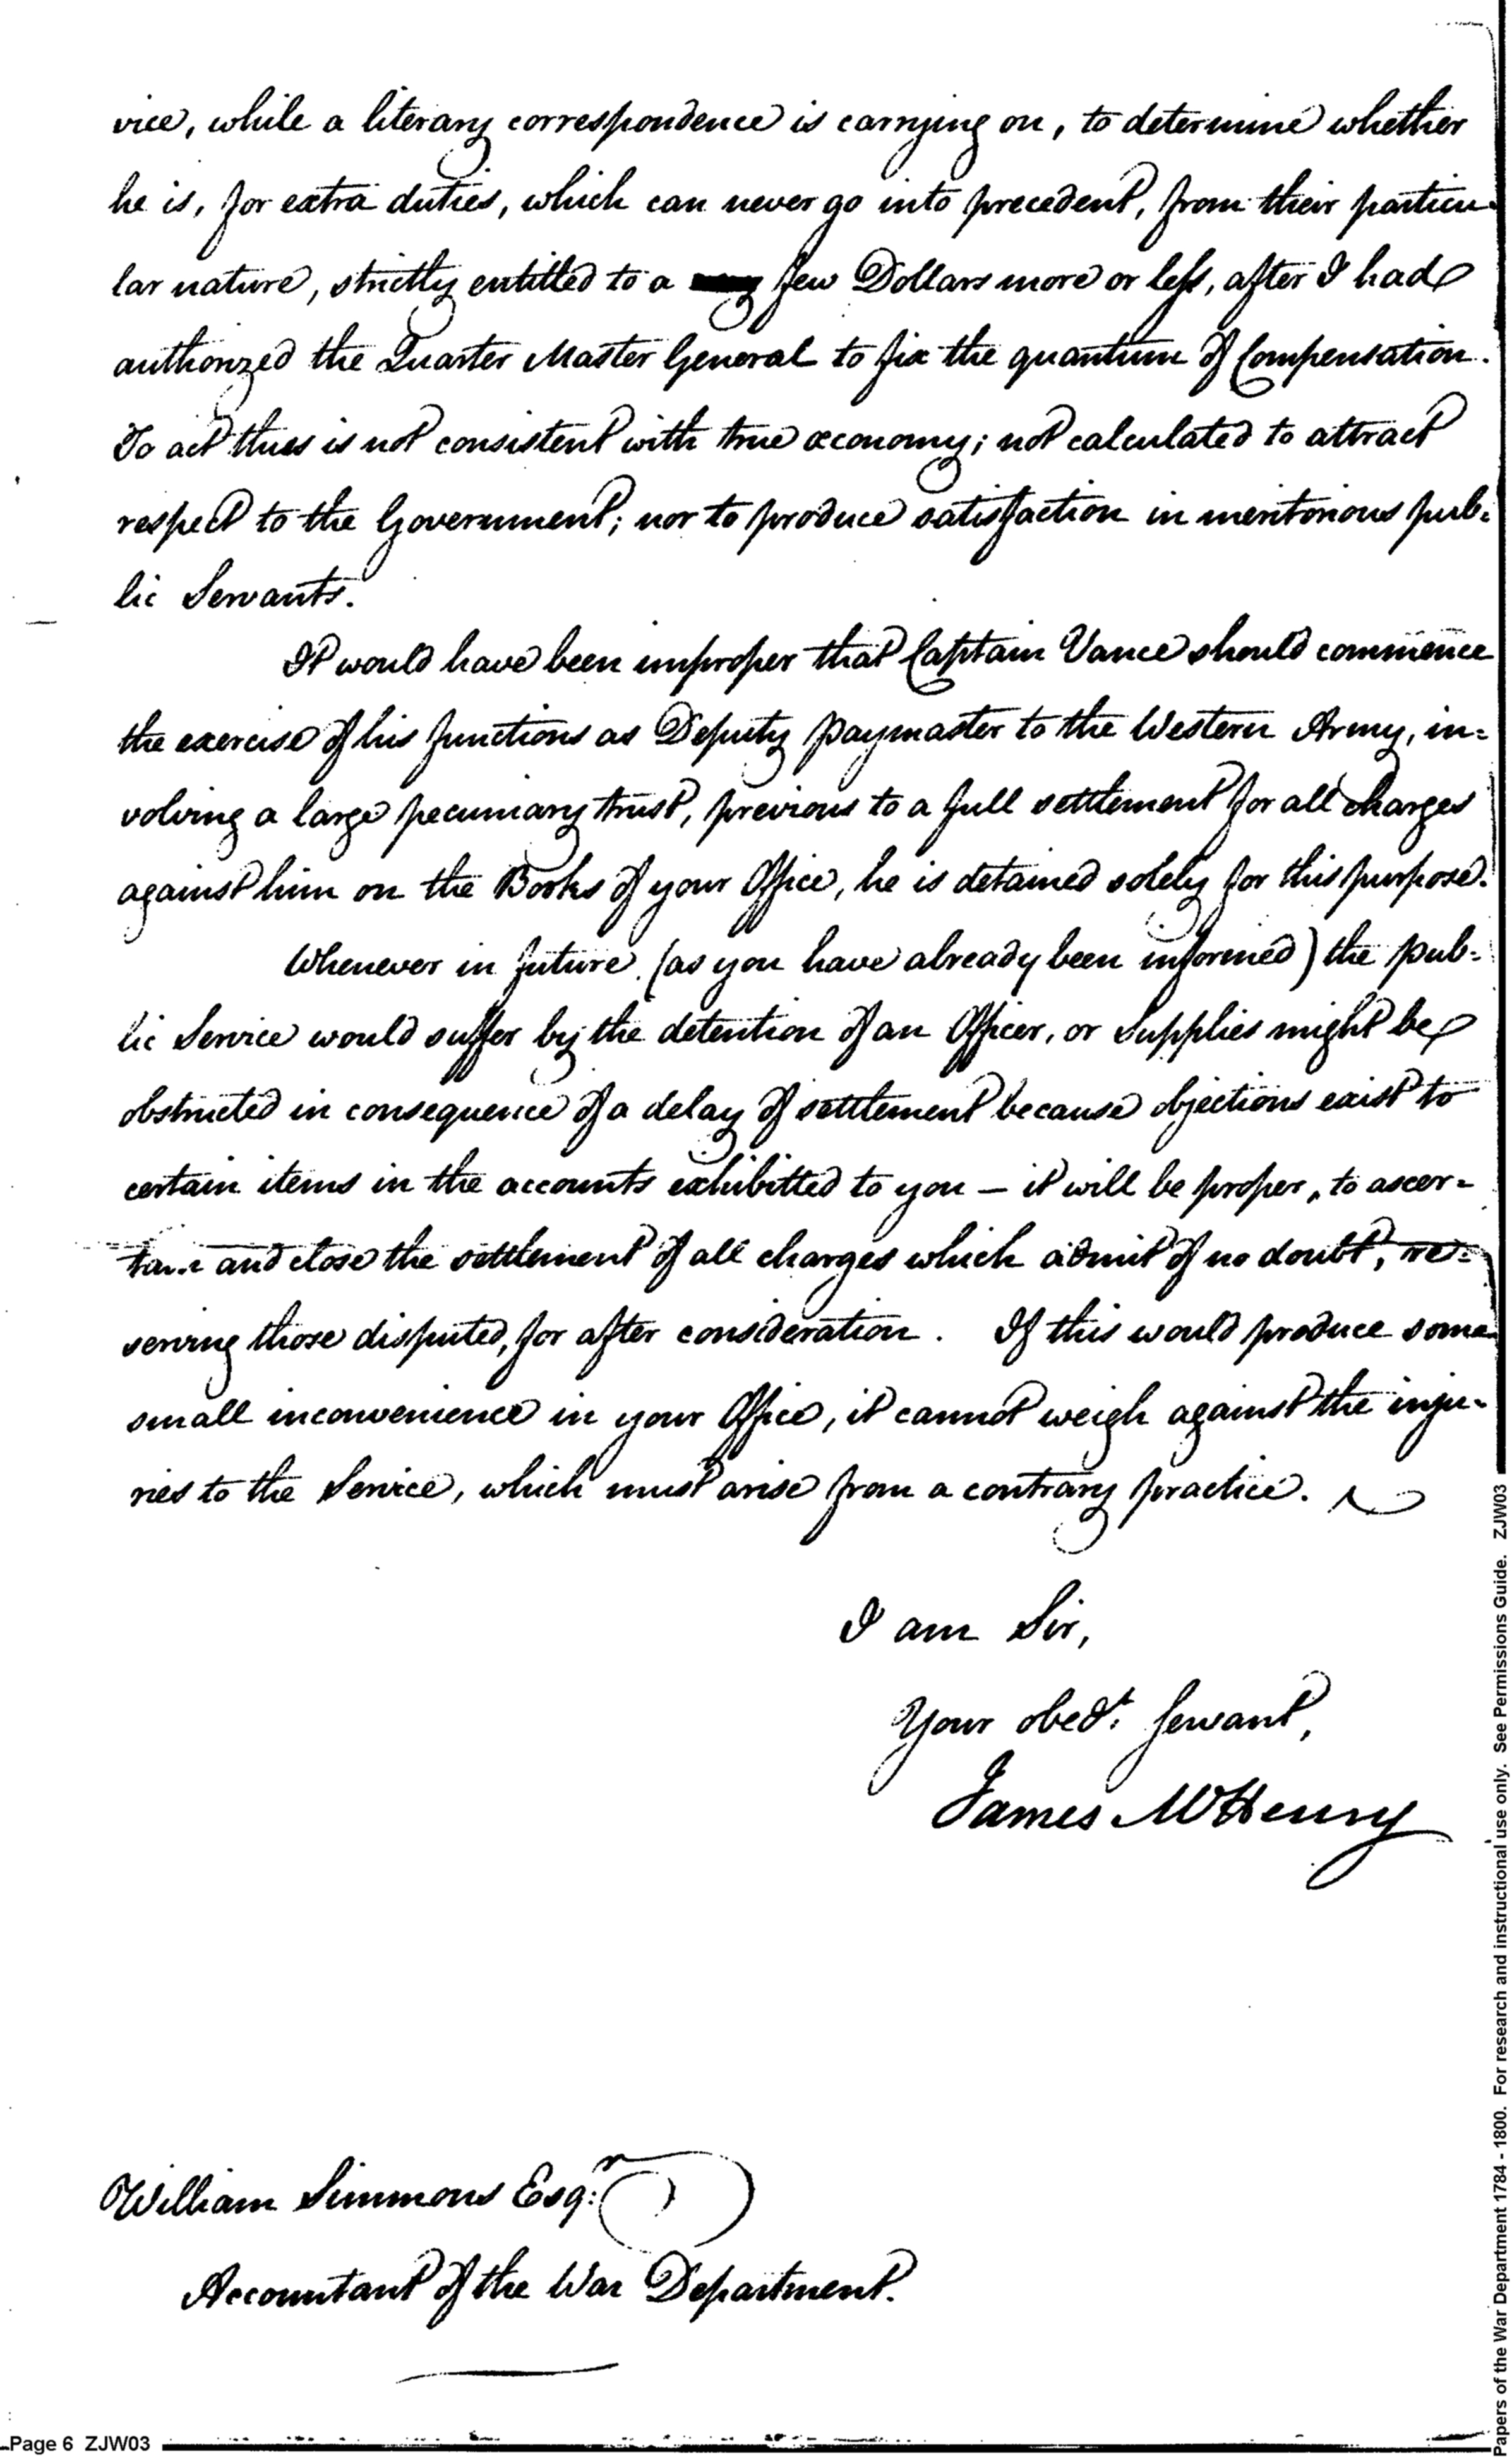 vice, while a literary correspondence is carrying on, to determine whether
he is, for extra duties, which can never go into precedent, from their particu-
lar nature, strictly entitled to a few Dollars more or less, after I had
authorized the Quarter Master General to fix the quantum of Compensation.
To act thus is not consistent with true œconomy; not calculated to attract
respect to the Government; nor to produce satisfaction in meritorious pub-
lic Servants.
It would have been improper that Captain Vance should commence
the exercise of his functions as Deputy Paymaster to the Western Army, in=
volving a large pecuniary trust, previous to a full settlement for all charges
against him on the Books of your Office, he is detained solely for this purpose.
Whenever in future (as you have already been informed) the pub-
lic Service would suffer by the detention of an Officer, or Supplies might be
obstructed in consequence of a delay of settlement because objections exist to
certain items in the accounts exhibitted to you — it will be proper, to ascer=
tain and close the settlement of all charges which admit of no doubt, re=
serving those disputed, for after consideration. If this would produce some
small inconvenience in your Office, it cannot weigh against the inju-
ries to the Service, which must arise from a contrary practice.
I am Sir,
Your obedt. Servant,
James McHenry
William Simmons Esqr:
Accountant of the War Department.
Page 6 ZJW03
Papers of the War Department 1784 - 1800. For research and instructional use only. See Permissions Guide. ZJW03